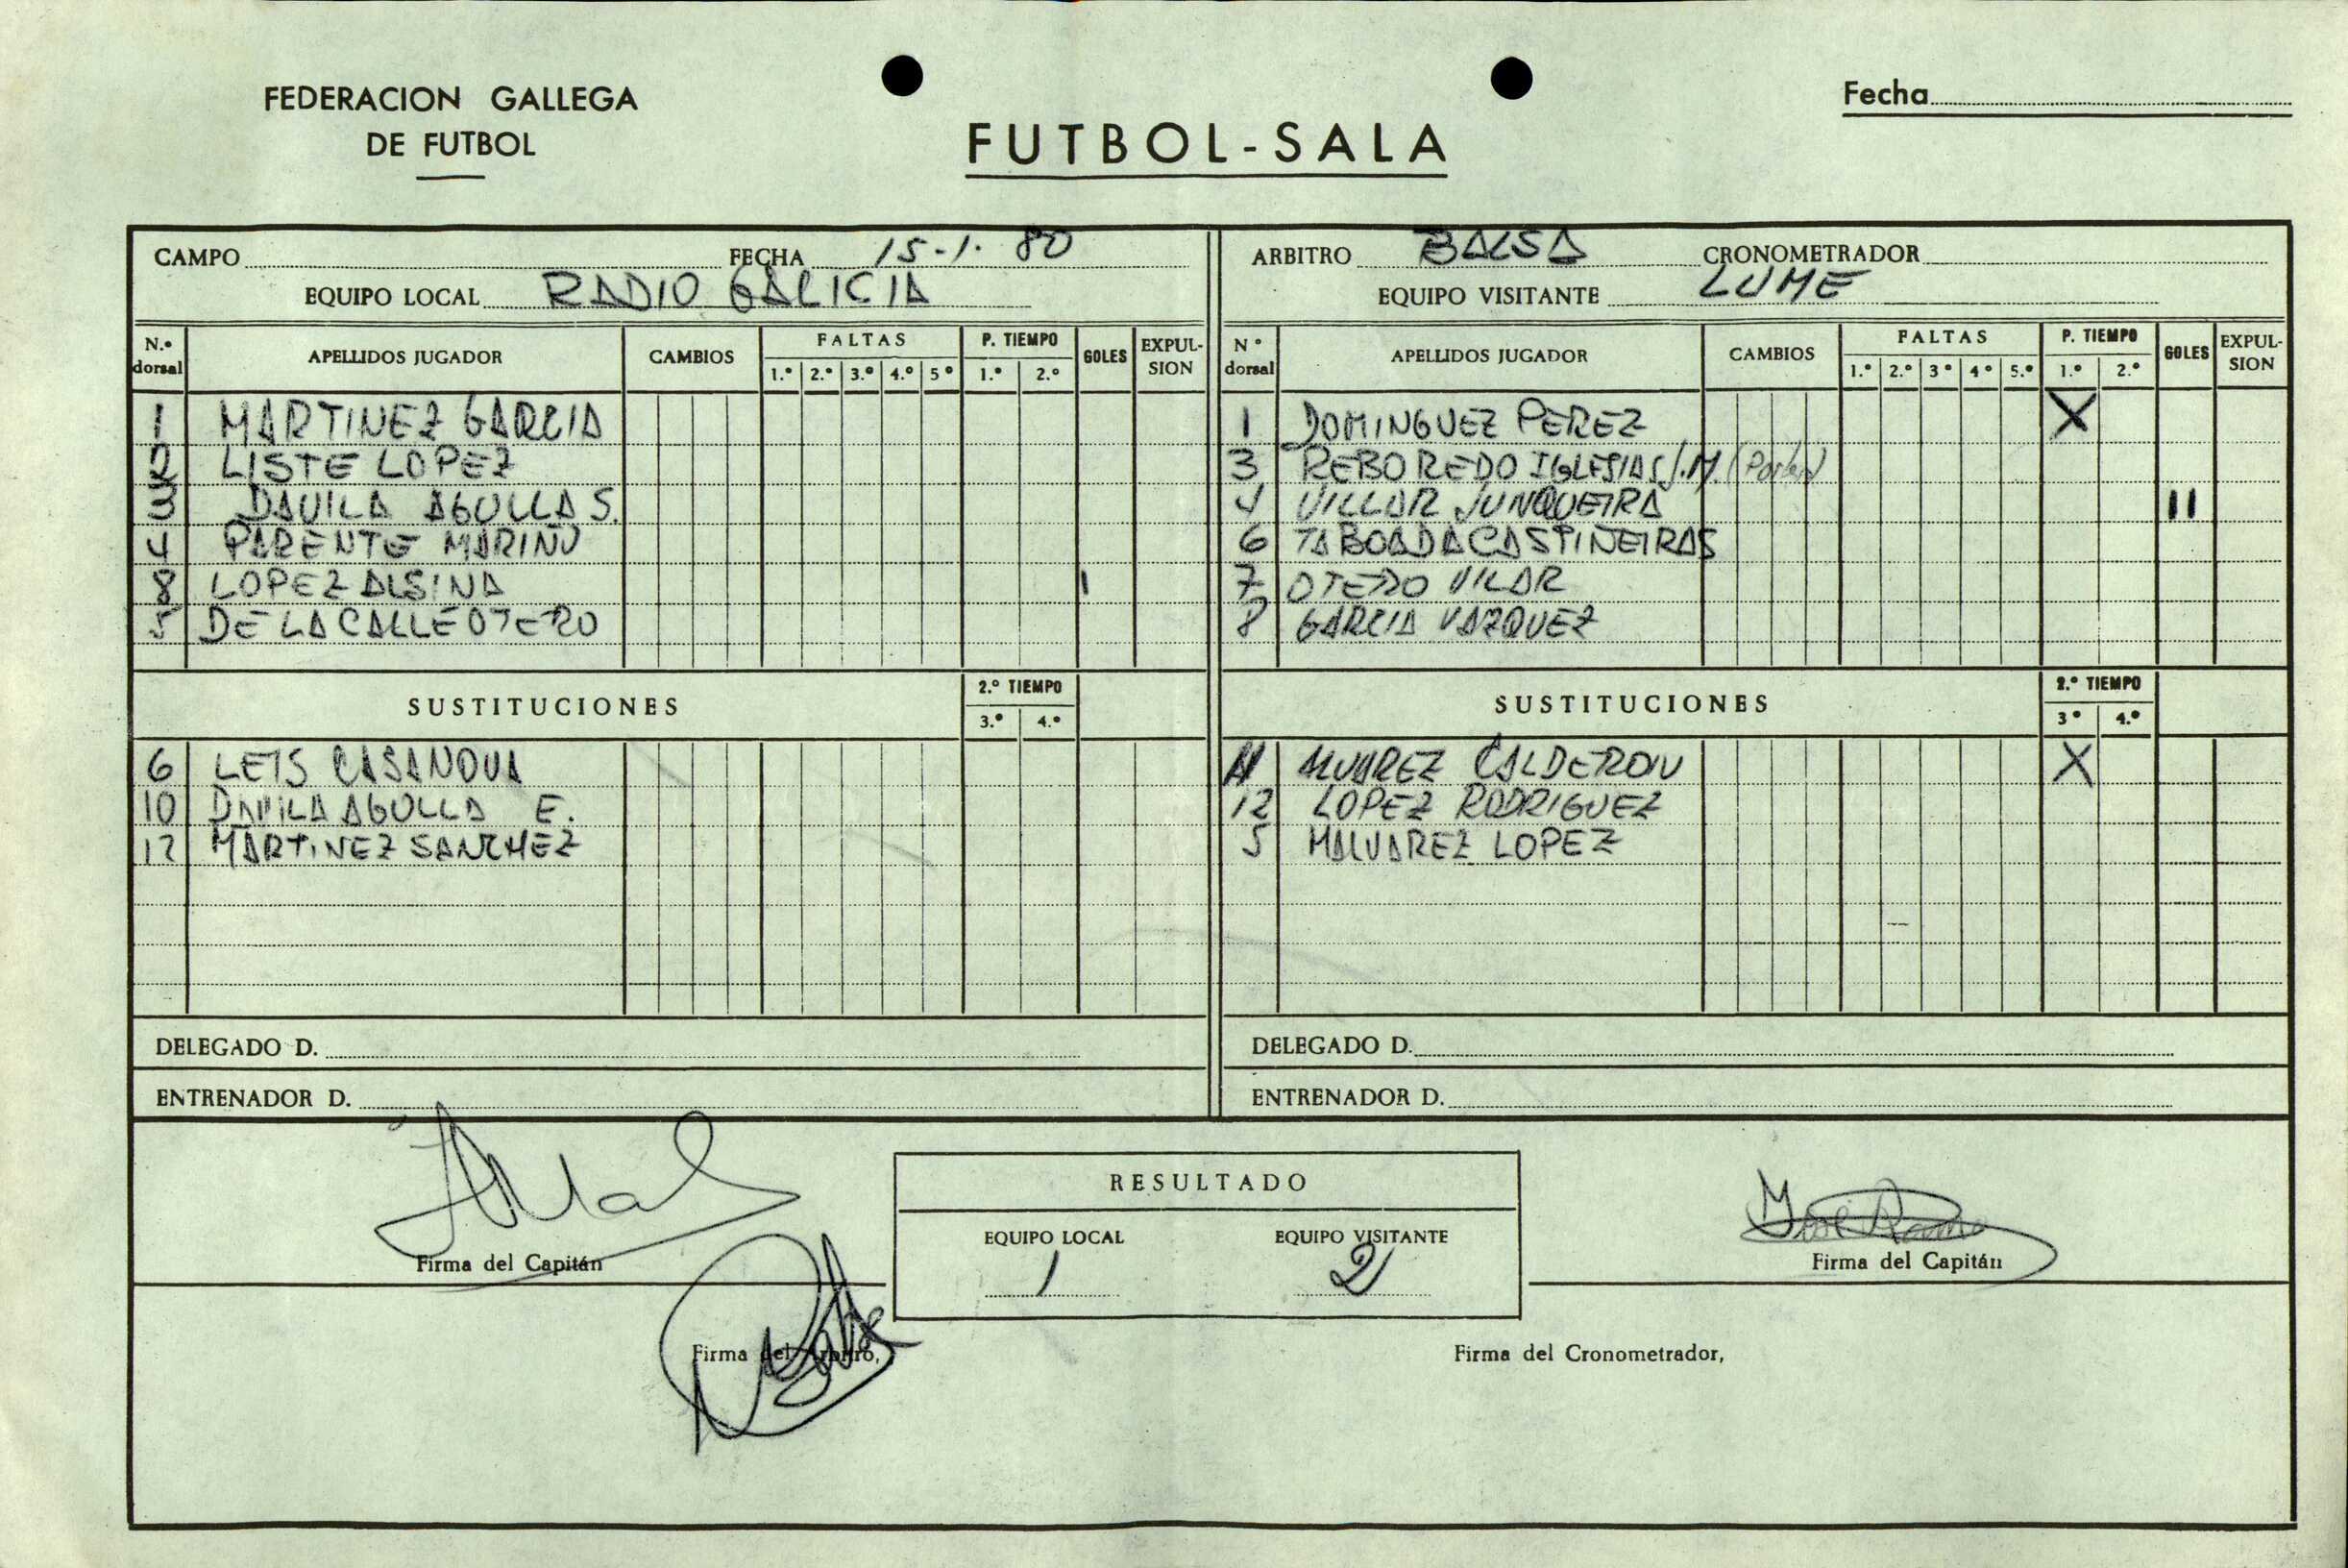 FEDERACION GALLEGA
DE FUTBOL
FUTBOL-SALA
Fecha
CAMPO FECHA 15-1-80
EQUIPO LOCAL RADIO GALICIA
N.º dorsal APELLIDOS JUGADOR CAMBIOS FALTAS 1.º 2.º 3.º 4.º 5º P. TIEMPO 1.º 2.º GOLES EXPUL-SION
1 MARTINEZ GARCIA
2 LISTE LOPEZ
3 DAVILA AGULLA S.
4 PARENTE MARIÑO
8 LOPEZ ALSINA I
5 DE LA CALLE OTERO
SUSTITUCIONES 2.º TIEMPO 3.º 4.º
6 LEIS CASANOVA
10 DAVILA AGULLA E.
12 MARTINEZ SANCHEZ
DELEGADO D.
ENTRENADOR D.
ARBITRO BALSA CRONOMETRADOR
EQUIPO VISITANTE LUME
Nº dorsal APELLIDOS JUGADOR CAMBIOS FALTAS 1.º 2.º 3º 4º 5.º P. TIEMPO 1.º 2.º GOLES EXPUL-SION
1 DOMINGUEZ PEREZ X
3 REBOREDO IGLESIAS J.M.
4 VILLAR JUNQUEIRA II
6 TABOADA CASTIÑEIRAS
7 OTERO VILAR
8 GARCIA VAZQUEZ
SUSTITUCIONES 2.º TIEMPO 3º 4.º
11 ALVAREZ CALDERON X
12 LOPEZ RODRIGUEZ
5 MALVAREZ LOPEZ
DELEGADO D.
ENTRENADOR D.
Firma del Capitán
RESULTADO
EQUIPO LOCAL EQUIPO VISITANTE
1 2
Firma del Capitán
Firma del Arbitro,
Firma del Cronometrador,